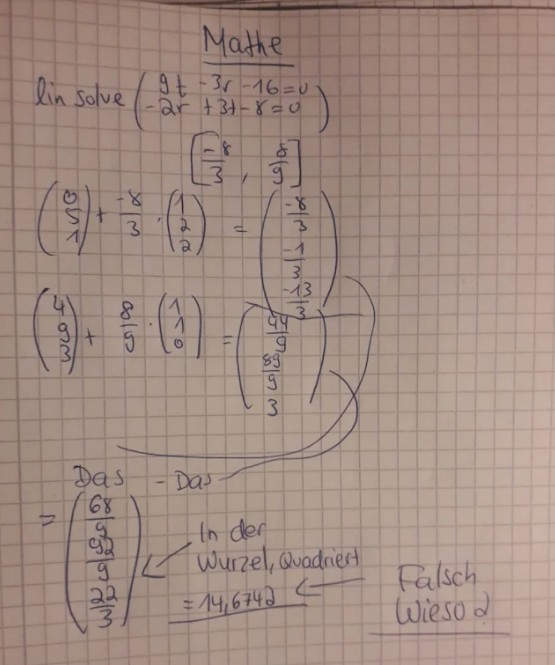 Mathe
lin solve ( 9t - 3r - 16 = 0
-2r + 3t - 8 = 0 )
[ -8/3 , 8/9 ]
(0 5 1) + -8/3 · (1 2 2) = (-8/3 -1/3 -13/3)
(4 9 3) + 8/9 · (1 1 0) = (44/9 89/9 3)
Das - Das
= (68/9 92/9 22/3)
In der
Wurzel, Quadriert
= 14,6742
Falsch
Wieso?